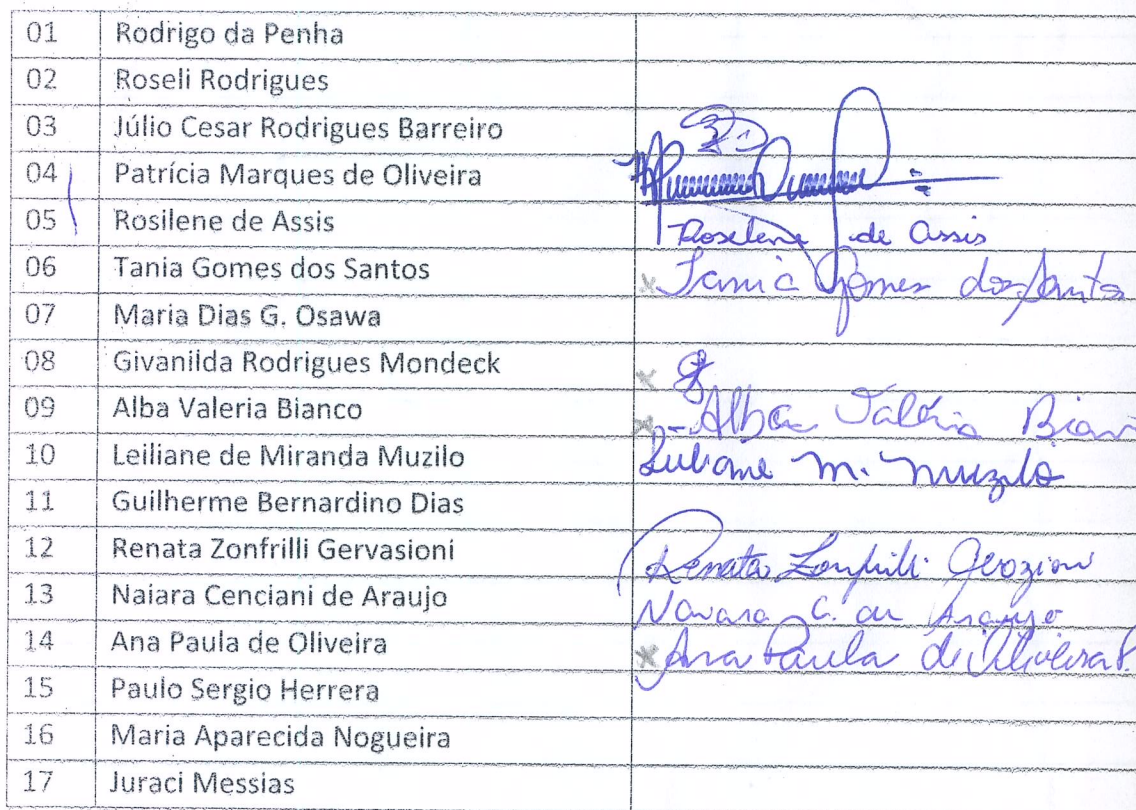 01 Rodrigo da Penha
02 Roseli Rodrigues
03 Júlio Cesar Rodrigues Barreiro
04 Patrícia Marques de Oliveira
05 Rosilene de Assis Roselene de Assis
06 Tania Gomes dos Santos Tania Gomes dos Santos
07 Maria Dias G. Osawa
08 Givanilda Rodrigues Mondeck
09 Alba Valeria Bianco Alba Valéria Bian
10 Leiliane de Miranda Muzilo M. Muzilo
11 Guilherme Bernardino Dias
12 Renata Zonfrilli Gervasioni Renata Zonfrilli
13 Naiara Cenciani de Araujo C. de Araujo
14 Ana Paula de Oliveira Ana Paula de Oliveira P.
15 Paulo Sergio Herrera
16 Maria Aparecida Nogueira
17 Juraci Messias